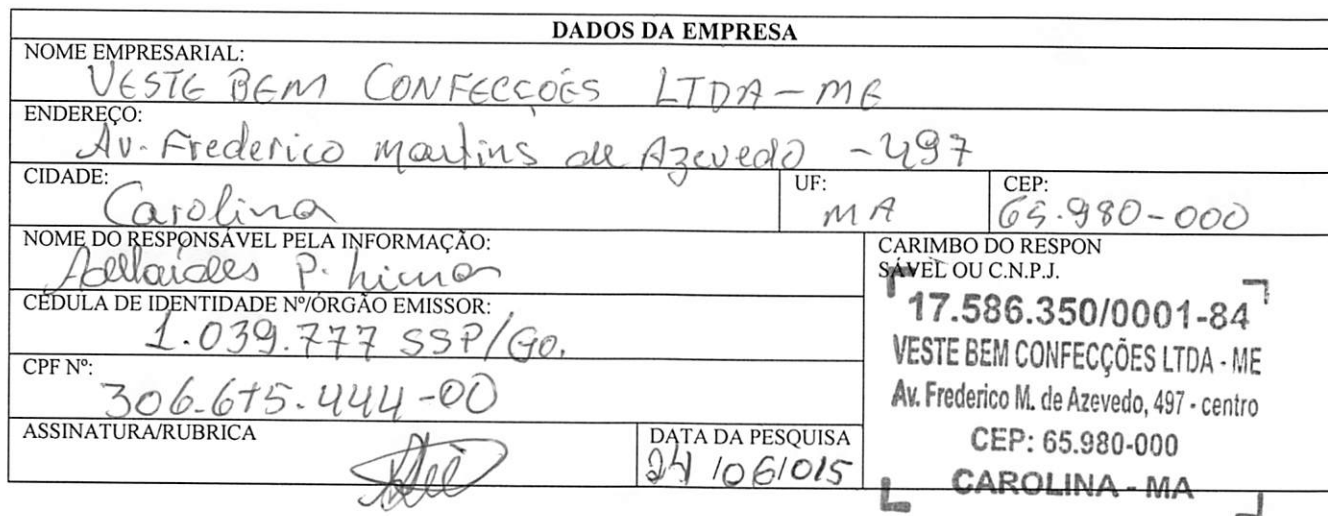 DADOS DA EMPRESA
NOME EMPRESARIAL:
VESTE BEM CONFECÇÓES LTDA-ME
ENDEREÇO:
Av. Frederico Martins de Azevedo - 497
CIDADE:
Carolina
UF:
MA
CEP:
65.980-000
NOME DO RESPONSÁVEL PELA INFORMAÇÃO:
P. Lima
CÉDULA DE IDENTIDADE Nº/ÓRGÃO EMISSOR:
1.039.777 SSP/GO.
CPF Nº:
306.675.444-00
ASSINATURA/RUBRICA
DATA DA PESQUISA
24/06/015
CARIMBO DO RESPON
SÁVEL OU C.N.P.J.
17.586.350/0001-84
VESTE BEM CONFECÇÕES LTDA - ME
Av. Frederico M. de Azevedo, 497 - centro
CEP: 65.980-000
CAROLINA - MA